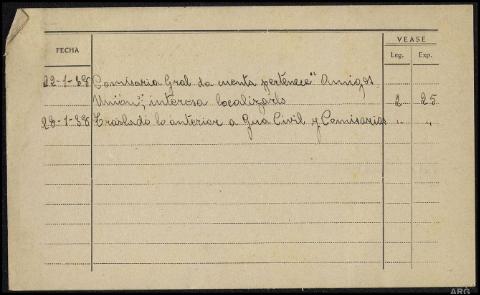 VEASE
FECHA
Leg. Exp.
22-1-38 Comisaria Gral da cuenta pertenece "Amigos
Unión", interesa localizarlo 2 25
28-1-38 Traslado lo anterior a Gua Civil y Comisarias " "
ARG